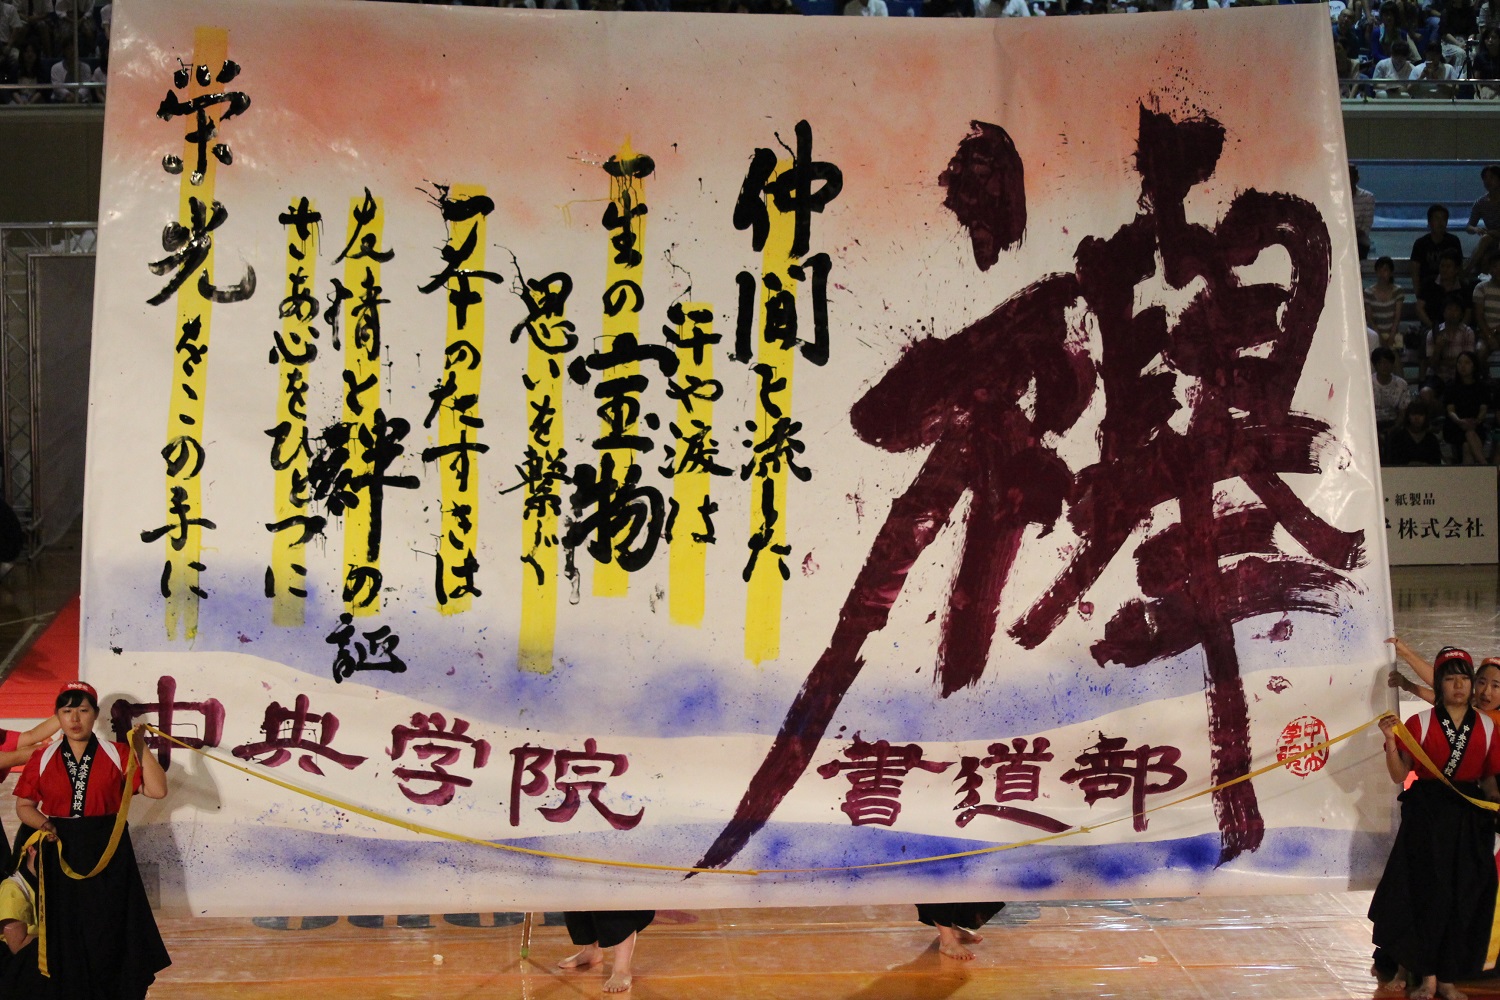 襷
仲間と流した
汗や涙は
一生の宝物
思いを繋ぐ
一本のたすきは
友情と絆の証
さあ心をひとつに
栄光をこの手に
中央学院 書道部
中央学院
・紙製品
株式会社
中央学院高校